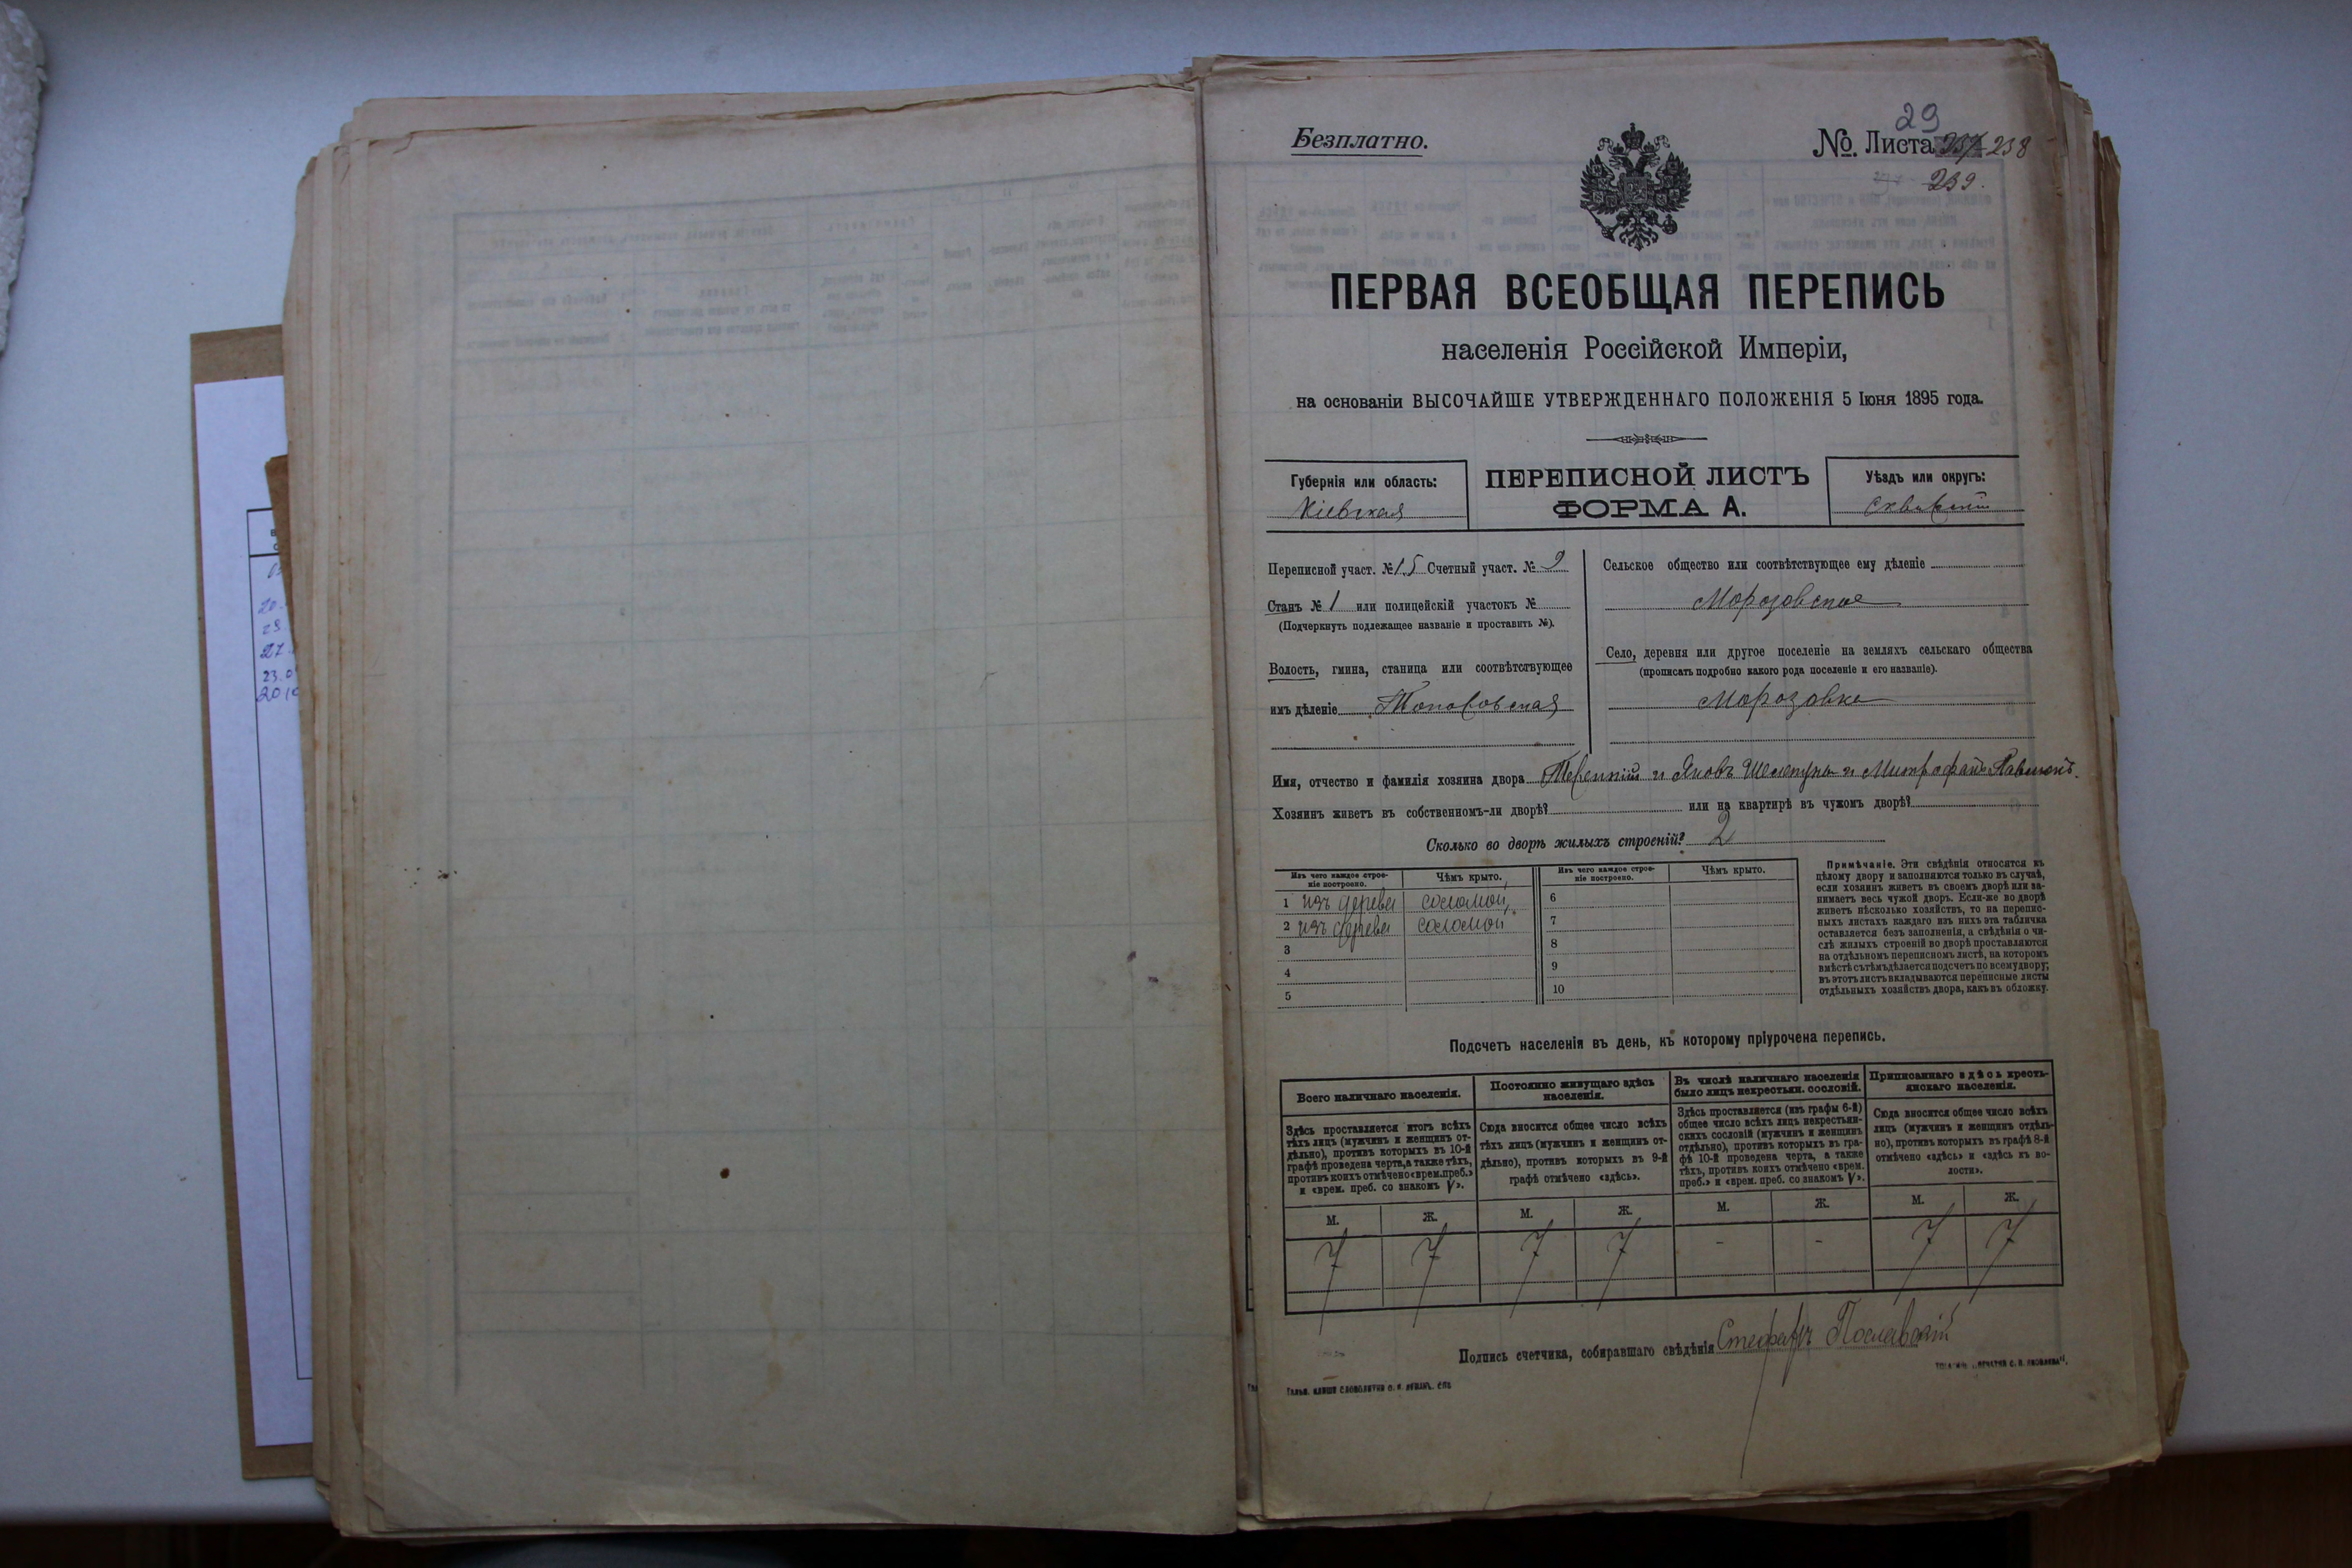 Безплатно.
29
№. Листа 237 238
239.
ПЕРВАЯ ВСЕОБЩАЯ ПЕРЕПИСЬ
населенія Россійской Имперіи,
на основаніи ВЫСОЧАЙШЕ УТВЕРЖДЕННАГО ПОЛОЖЕНІЯ 5 Іюня 1895 года.
Губернія или область:
Кіевская
ПЕРЕПИСНОЙ ЛИСТЪ
ФОРМА А.
Уѣздъ или округъ:
Сквирскій
Переписной участ. № 15 Счетный участ. № 9
Станъ № 1 или полицейскій участокъ №
(Подчеркнуть подлежащее названіе и проставить №).
Волость, гмина, станица или соотвѣтствующее
имъ дѣленіе
Сельское общество или соотвѣтствующее ему дѣленіе
Морозовское
Село, деревня или другое поселеніе на земляхъ сельскаго общества
(прописать подробно какого рода поселеніе и его названіе).
Морозовка
Имя, отчество и фамилія хозяина двора Терентій и Яковъ и Митрофанъ
Хозяинъ живетъ въ собственномъ-ли дворѣ? или на квартирѣ въ чужомъ дворѣ?
Сколько во дворѣ жилыхъ строеній? 2
Изъ чего каждое строе-
ніе построено.
Чѣмъ крыто.
Изъ чего каждое строе-
ніе построено.
Чѣмъ крыто.
1 изъ дерева соломой 6
2 изъ дерева соломой 7
3 8
4 9
5 10
Примѣчаніе. Эти свѣдѣнія относятся къ
цѣлому двору и заполняются только въ случаѣ,
если хозяинъ живетъ въ своемъ дворѣ или за-
нимаетъ весь чужой дворъ. Если-же во дворѣ
живетъ нѣсколько хозяйствъ, то на перепис-
ныхъ листахъ каждаго изъ нихъ эта табличка
оставляется безъ заполненія, а свѣдѣнія о чи-
слѣ жилыхъ строеній во дворѣ проставляются
на отдѣльномъ переписномъ листѣ, на которомъ
вмѣстѣ съ тѣмъ дѣлается подсчетъ по всему двору;
въ этотъ листъ вкладываются переписные листы
отдѣльныхъ хозяйствъ двора, какъ въ обложку.
Подсчетъ населенія въ день, къ которому пріурочена перепись.
Всего наличнаго населенія.
Здѣсь проставляется итогъ всѣхъ
тѣхъ лицъ (мужчинъ и женщинъ от-
дѣльно), противъ которыхъ въ 10-й
графѣ проведена черта, а также тѣхъ,
противъ коихъ отмѣчено «врем. преб.»
и «врем. преб. со знакомъ V».
Постоянно живущаго здѣсь
населенія.
Сюда вносится общее число всѣхъ
тѣхъ лицъ (мужчинъ и женщинъ от-
дѣльно), противъ которыхъ въ 9-й
графѣ отмѣчено «здѣсь».
Въ числѣ наличнаго населенія
было лицъ некрестьян. сословій.
Здѣсь проставляется (изъ графы 6-й)
общее число всѣхъ лицъ некрестьян-
скихъ сословій (мужчинъ и женщинъ
отдѣльно), противъ которыхъ въ гра-
фѣ 10-й проведена черта, а также
тѣхъ, противъ коихъ отмѣчено «врем.
преб.» и «врем. преб. со знакомъ V».
Приписаннаго здѣсь кресть-
янскаго населенія.
Сюда вносится общее число всѣхъ
лицъ (мужчинъ и женщинъ отдѣль-
но), противъ которыхъ въ графѣ 8-й
отмѣчено «здѣсь» и «здѣсь въ во-
лости».
М. Ж. М. Ж. М. Ж. М. Ж.
7 7 7 7 - - 7 7
Подпись счетчика, собиравшаго свѣдѣнія Стефанъ